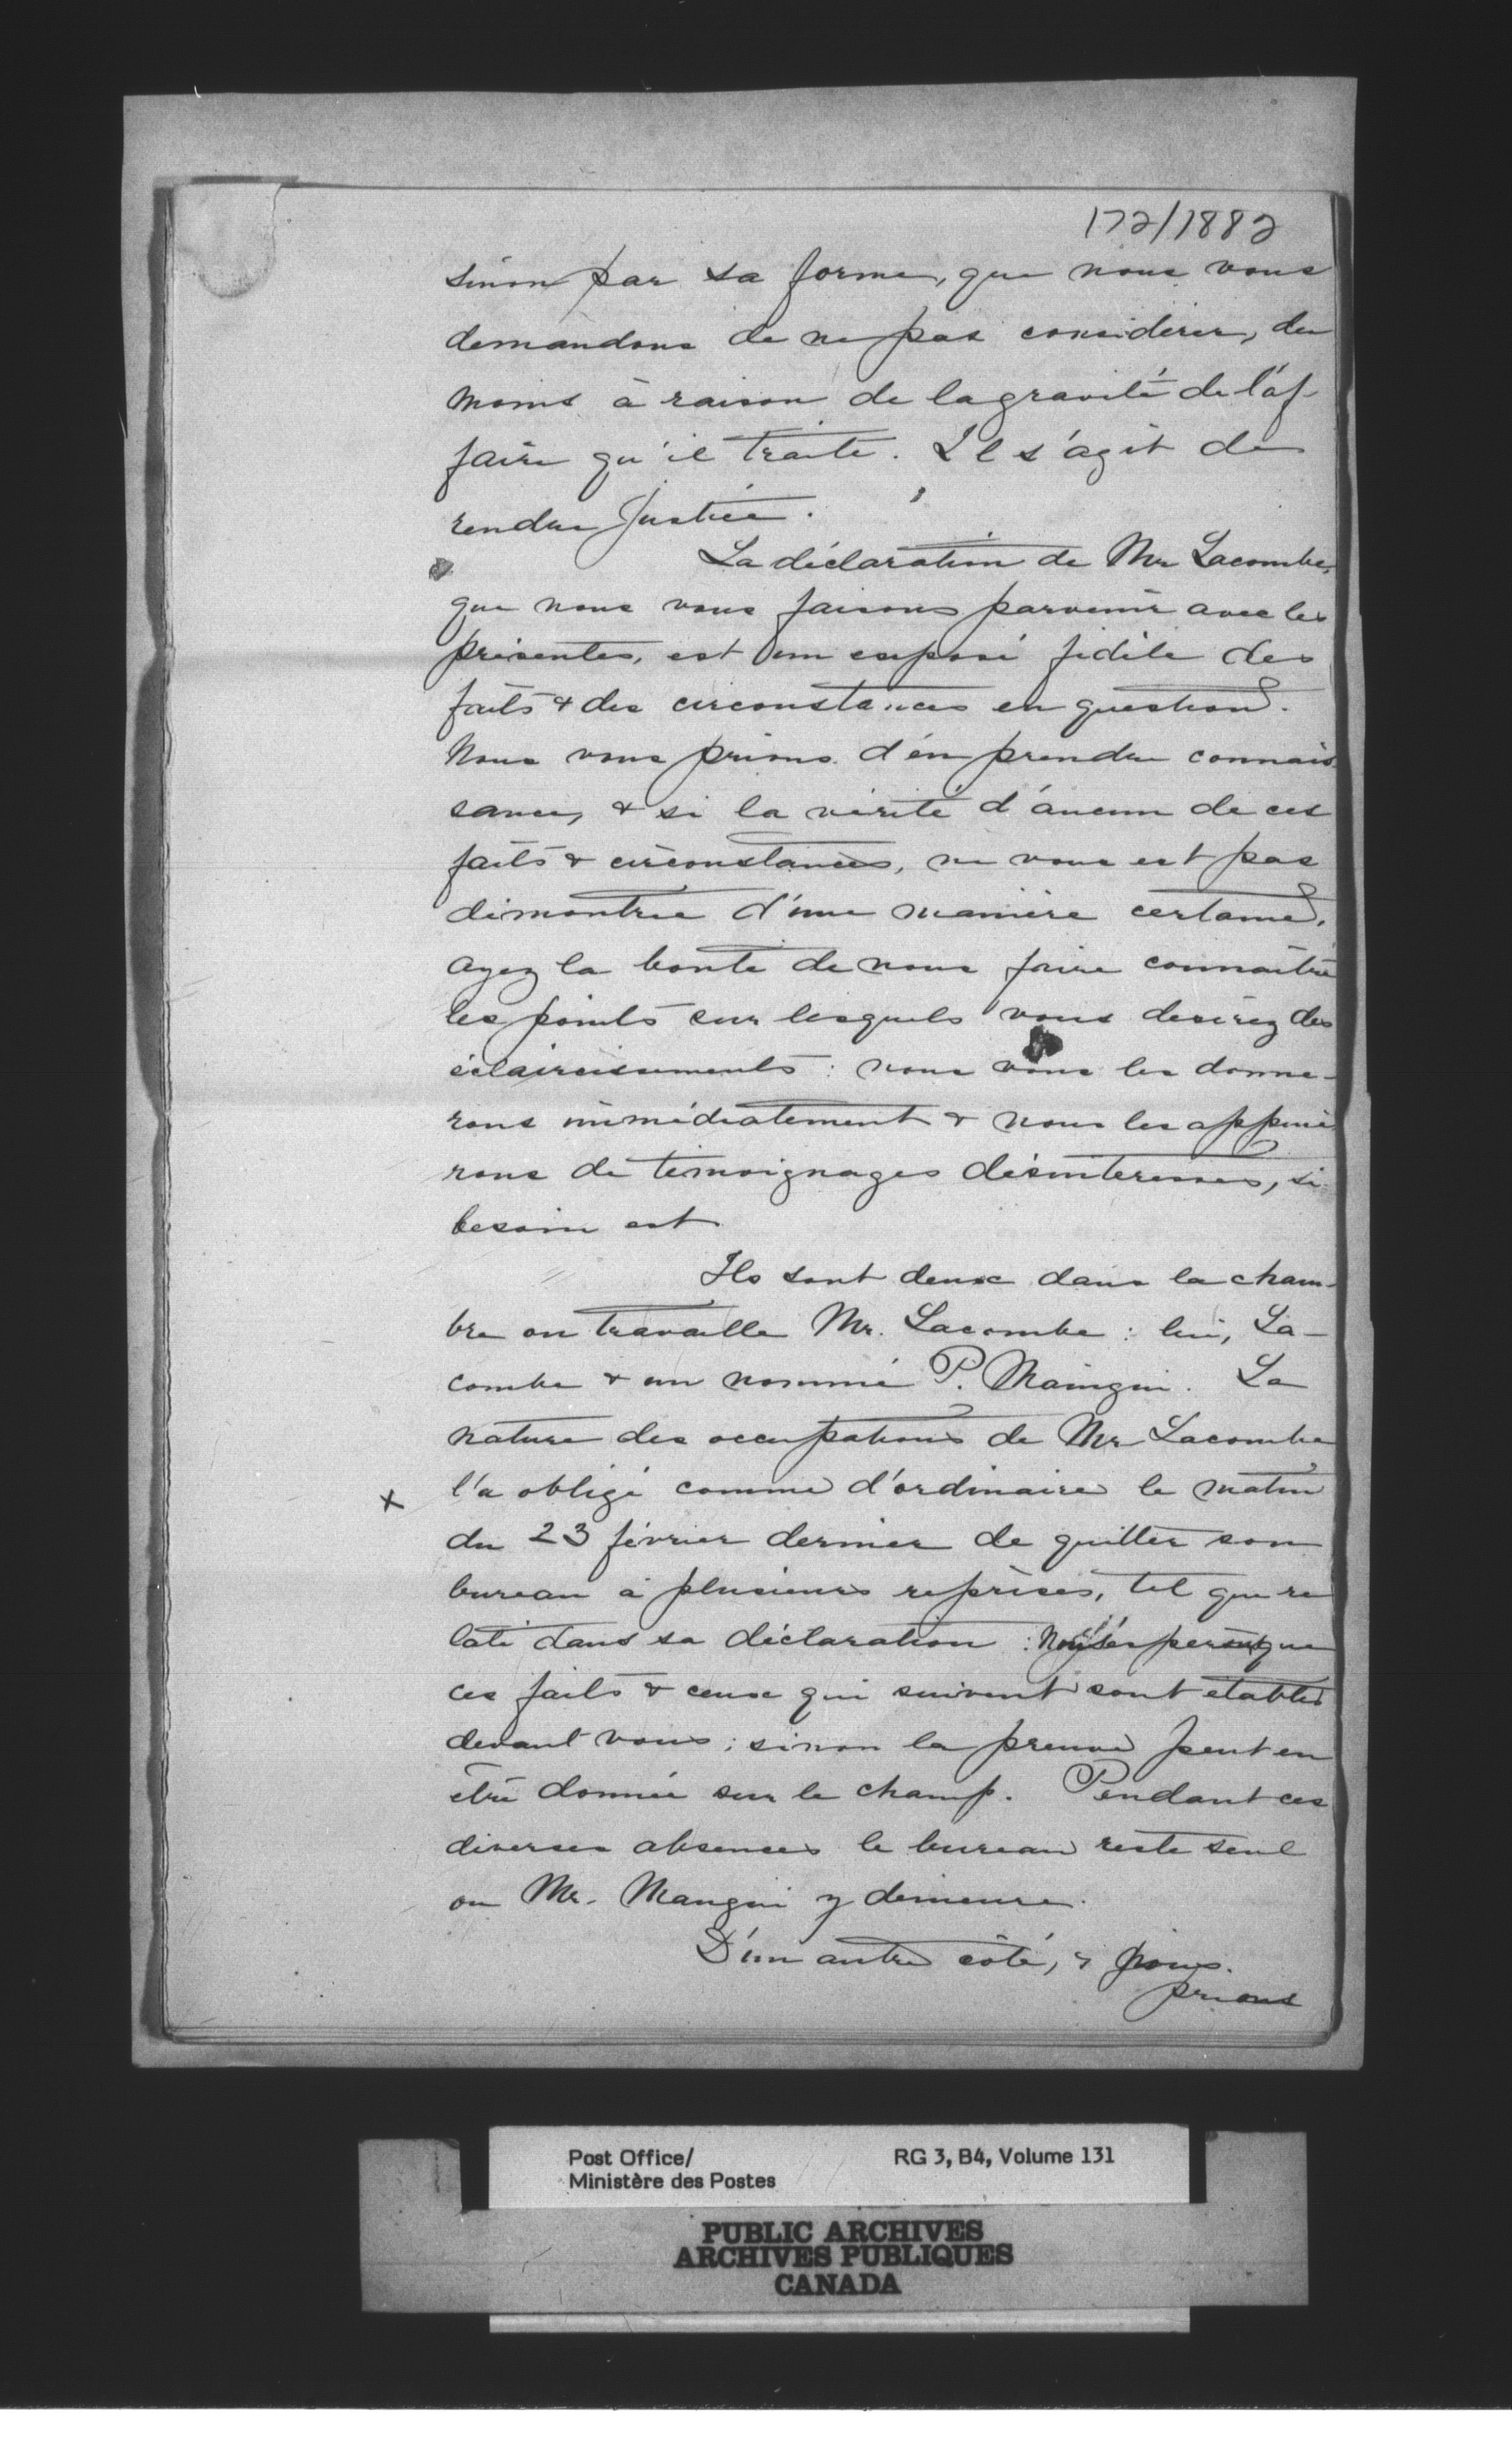 172/1882
sinon par sa forme, que nous vous
demandons de ne pas considérer, du
moins à raison de la gravité de l'af-
faire qu'il traite. Il s'agit de
rendre justice.
La déclaration de Mr Lacombe,
que nous vous faisons parvenir avec les
présentes, est un exposé fidèle des
faits & des circonstances en question.
Nous vous prions d'en prendre connais-
sance, & si la vérité d'aucun de ces
faits & circonstances, ne vous est pas
démontrée d'une manière certaine,
ayez la bonté de nous faire connaître
les points sur lesquels vous desirez des
éclaircissements : nous vous les donne-
rons immédiatement & nous les appuie-
rons de témoignages désintéressés, si
besoin est
Ils sont deux dans la cham-
bre ou travaille Mr. Lacombe : lui, La-
combe & un nommé P. Maingui. La
nature des occupations de Mr Lacombe
x l'a obligé comme d'ordinaire le matin
du 23 février dernier de quitter son
bureau à plusieurs reprises, tel que re
laté dans sa déclaration : que
ces faits & ceux qui suivent sont établis
devant vous ; sinon la preuve peut en
être donnée sur le champ. Pendant ces
diverses absences le bureau reste seul
ou Mr. Mangui y demeure.
D'un autre côté, &
prions
Post Office/
Ministère des Postes
RG 3, B4, Volume 131
PUBLIC ARCHIVES
ARCHIVES PUBLIQUES
CANADA